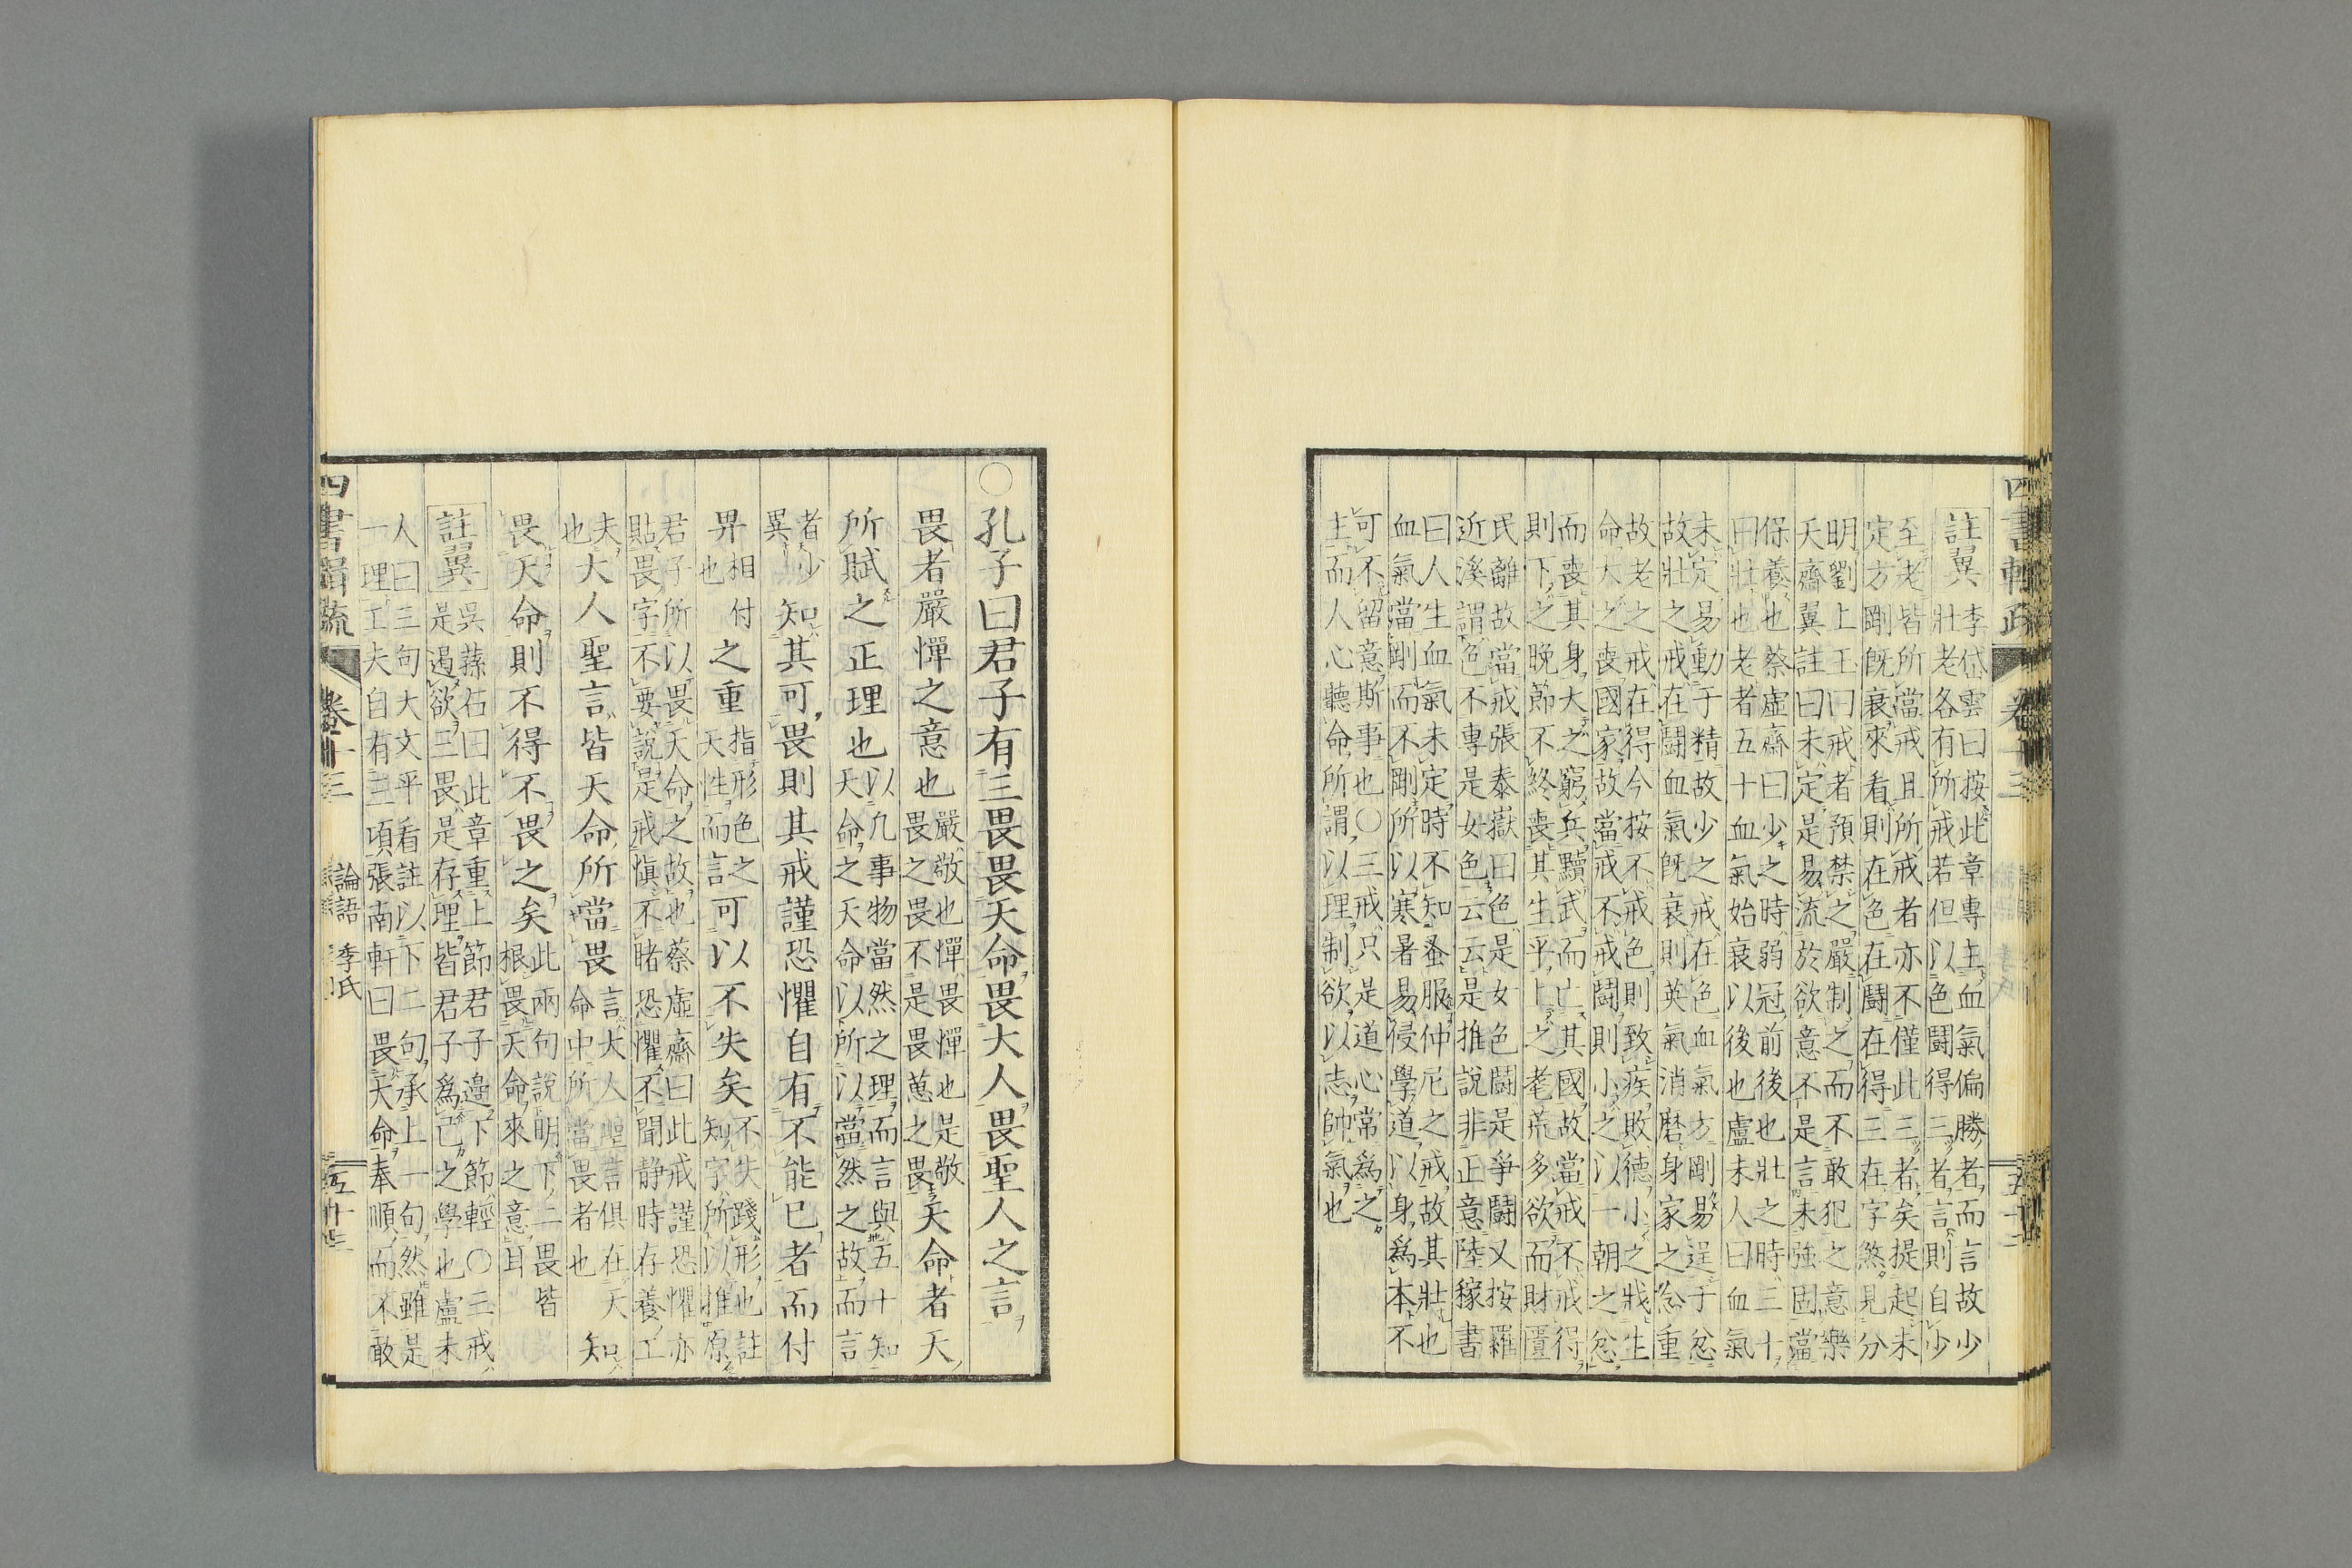 註翼
李岱雲曰按此章專主血氣偏勝者而言故少
壯老各有所戒若但以色鬪得三者言則自少
至老皆所當戒且所戒者亦不僅此三者矣提起未
定方剛既衰來看則在色在鬪在得三在字煞見分
明劉上玉曰戒者預禁之嚴制之而不敢犯之意樂
天齋翼註曰未定是易流於欲意不是言未強固當
保養也蔡虛齋曰少之時弱冠前後也壯之時三十
曰壯也老者五十血氣始衰以後也盧未人曰血氣
未定易動于精故少之戒在色血氣方剛易逞于忿
故壯之戒在鬪血氣既衰則英氣消磨身家之念重
故老之戒在得今按不戒色則致疾敗德小之戕生
命大之喪國家故當戒不戒鬪則小之以一朝之忿
而喪其身大之窮兵黷武而亡其國故當戒不戒得
則下之晚節不終喪其生平上之耄荒多欲而財匱
民離故當戒張泰嶽曰色是女色鬪是爭鬪又按羅
近溪謂色不專是女色云云是推說非正意陸稼書
曰人生血氣未定時不知蚤服仲尼之戒故其壯也
血氣當剛而不剛所以寒暑易侵學道以身為本不
可不留意斯事也○三戒只是道心常為之
主而人心聽命所謂以理制欲以志帥氣也
四書輯疏 卷十三
○孔子曰君子有三畏畏天命畏大人畏聖人之言
畏者嚴憚之意也
嚴敬也憚畏憚也是敬
畏之畏不是畏葸之畏
天命者天
所賦之正理也
以凡事物當然之理而言與五十知
天命之天命以所以當然之故而言
者少
異
知其可畏則其戒謹恐懼自有不能已者而付
畀
相付
也
之重
指形色之
天性而言
可以不失矣
不失踐形也註
知字所以推原
君子所以畏天命之故也蔡虛齋曰此戒謹恐懼亦
貼畏字不要說是戒慎不睹恐懼不聞靜時存養工
夫
也
大人聖言皆天命所當畏
言大人聖言俱在天
命中所當畏者也
知
畏天命則不得不畏之矣
此兩句說明下二畏皆
根畏天命來之意耳
註翼
吳蓀石曰此章重上節君子邊下節輕○三戒
是遏欲三畏是存理皆君子為己之學也盧未
人曰三句大文平看註以下二句承上一句然雖是
一理工夫自有三項張南軒曰畏天命奉順而不敢
四書輯疏 卷十三 論語 季氏